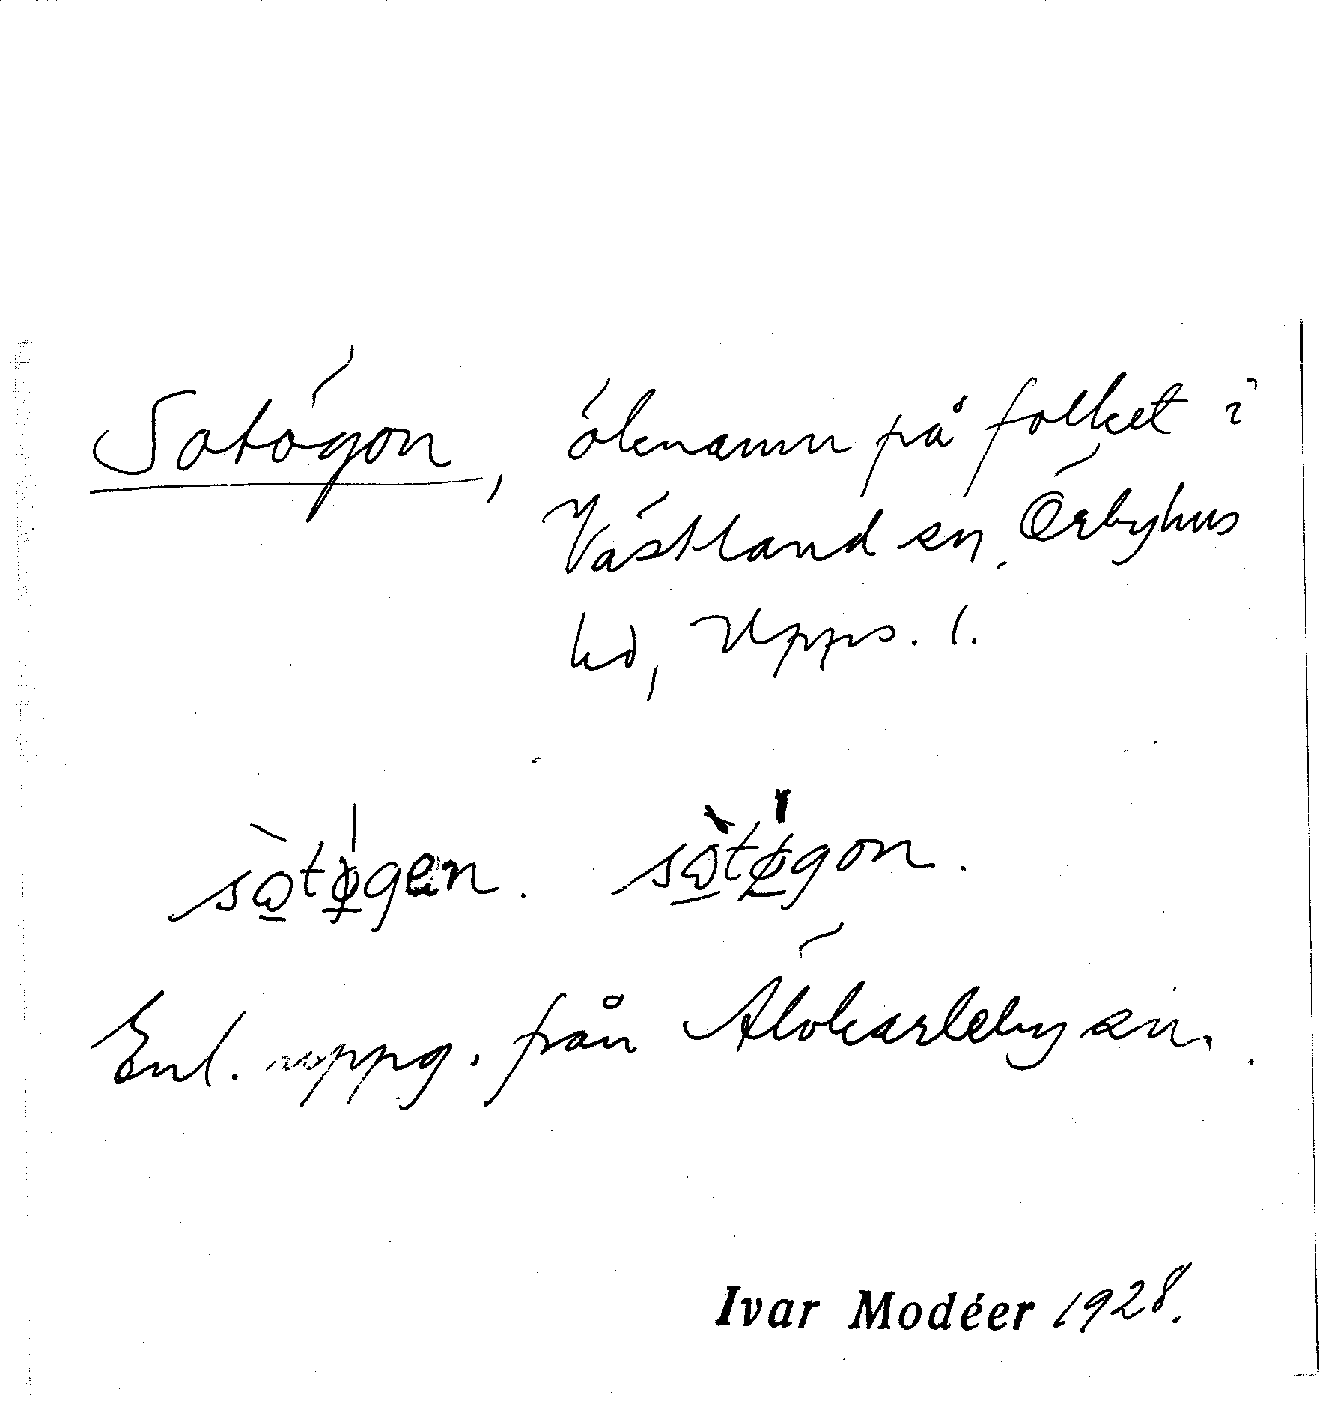 Sotögon, öknamn på folket i
Västland sn, Örbyhus
hd, Upps. l.
sὼ̲tǿ̲gen. sὼ̲tǿ̲gon.
Enl. uppg. från Älvkarleby sn.
Ivar Modéer 1928.